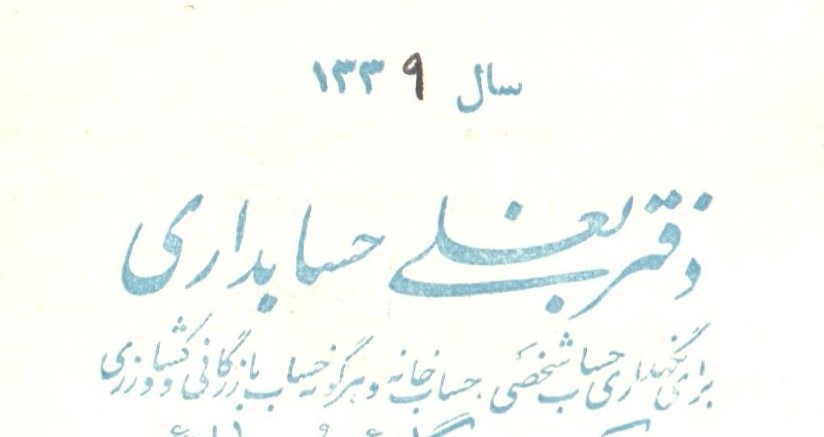 سال ۱۳۳۹
دفتر بغلی حسابداری
برای نگهداری حساب شخصی، حساب خانه و هرگونه حساب بازرگانی و کشاورزی